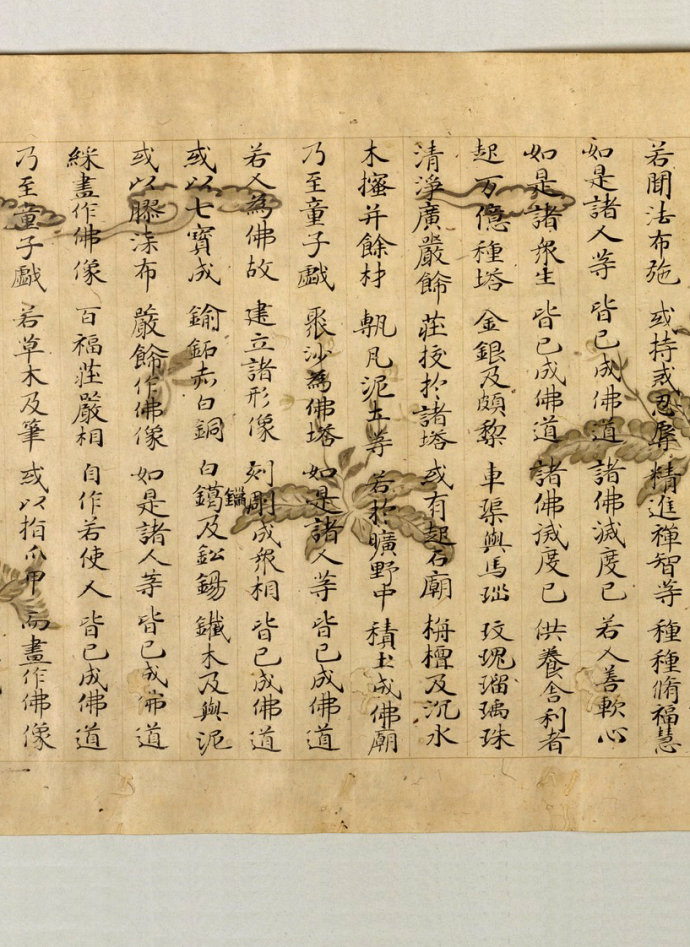 若聞法布施 或持或忍辱 精進禪智等 種種脩福慧
如是諸人等 皆已成佛道 諸佛滅度已 若人善軟心
如是諸衆生 皆已成佛道 諸佛滅度已 供養舍利者
起万億種塔 金銀及頗黎 車璖與馬瑙 玫瑰瑠璃珠
清淨廣嚴飾 莊挍於諸塔 或有起石廟 栴檀及沉水
木櫁并餘材 甎瓦泥土等 若於曠野中 積土成佛廟
乃至童子戲 聚沙為佛塔 如是諸人等 皆已成佛道
若人為佛故 建立諸形像 刻彫成衆相 皆已成佛道
或以七寶成 鍮鉐赤白銅 白鑞及鈆錫 鐵木及與泥
或以膠漆布 嚴飾作佛像 如是諸人等 皆已成佛道
綵畫作佛像 百福莊嚴相 自作若使人 皆已成佛道
乃至童子戲 若草木及筆 或以指爪甲 而畫作佛像